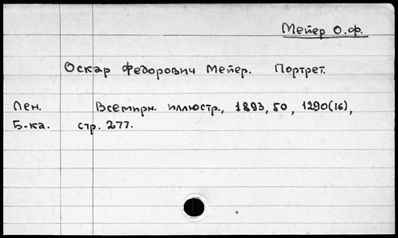 Мейер О.Ф.
Оскар Федорович Мейер. Портрет.
Лен. Всемирн. иллюстр., 1893, 50, 1290(16),
Б-ка. стр. 277.